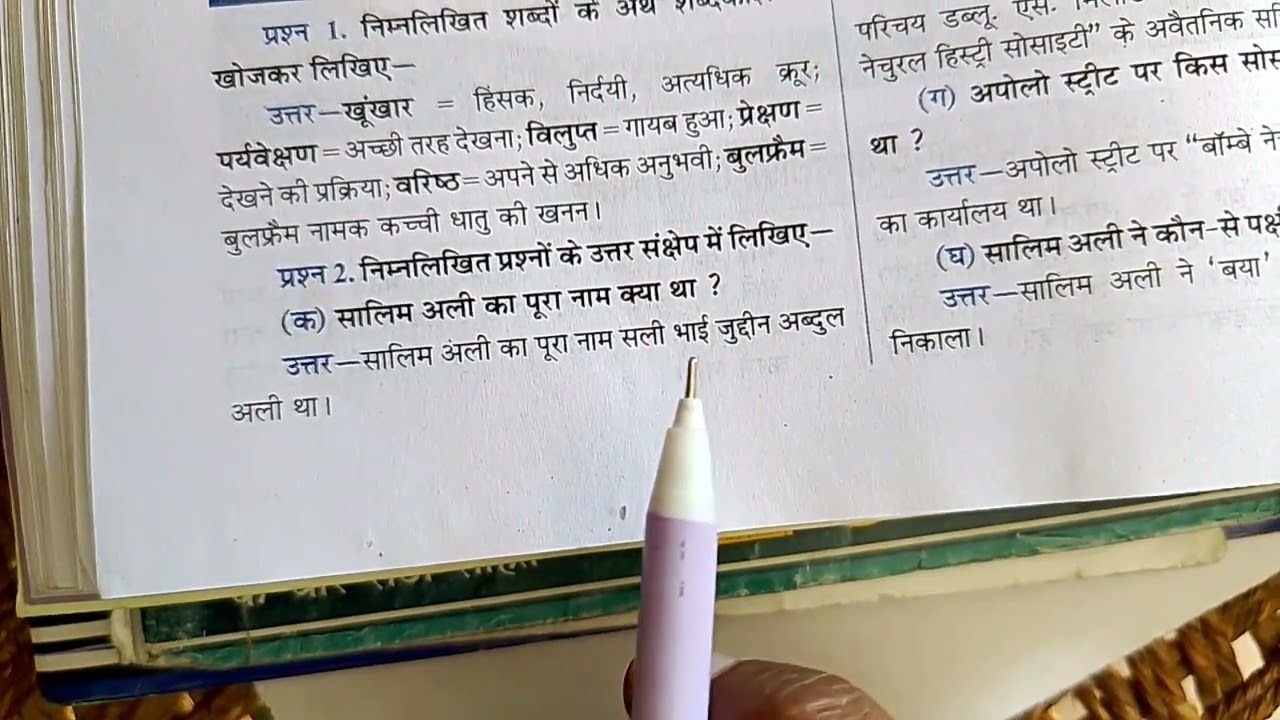 प्रश्न 1. निम्नलिखित शब्दों के अर्थ
खोजकर लिखिए—
उत्तर—खूंखार = हिंसक, निर्दयी, अत्यधिक क्रूर;
पर्यवेक्षण = अच्छी तरह देखना; विलुप्त = गायब हुआ; प्रेक्षण =
देखने की प्रक्रिया; वरिष्ठ = अपने से अधिक अनुभवी; बुलफ्रैम =
बुलफ्रैम नामक कच्ची धातु की खनन।
प्रश्न 2. निम्नलिखित प्रश्नों के उत्तर संक्षेप में लिखिए—
(क) सालिम अली का पूरा नाम क्या था ?
उत्तर—सालिम अली का पूरा नाम सली भाई जुद्दीन अब्दुल
अली था।
परिचय डब्लू. एस.
नेचुरल हिस्ट्री सोसाइटी” के अवैतनिक
(ग) अपोलो स्ट्रीट पर किस
था ?
उत्तर—अपोलो स्ट्रीट पर “बॉम्बे
का कार्यालय था।
(घ) सालिम अली ने कौन-से
उत्तर—सालिम अली ने ‘बया’
निकाला।